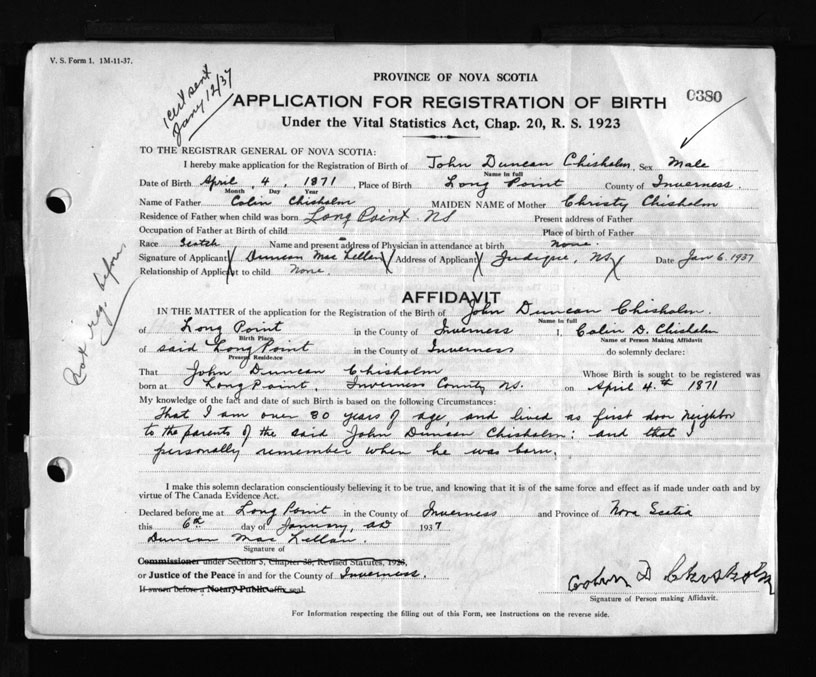 V. S. Form 1. 1M-11-37.
Cert sent
Jany 12/37
PROVINCE OF NOVA SCOTIA
APPLICATION FOR REGISTRATION OF BIRTH
0380
Under the Vital Statistics Act, Chap. 20, R. S. 1923
TO THE REGISTRAR GENERAL OF NOVA SCOTIA:
I hereby make application for the Registration of Birth of John Duncan Chisholm, Sex Male
Name in full
Date of Birth April 4, 1871 Place of Birth Long Point County of Inverness.
Month Day Year
Name of Father Colin Chisholm MAIDEN NAME of Mother Christy Chisholm
Residence of Father when child was born Long Point NS Present address of Father
Occupation of Father at Birth of child Place of birth of Father
Race Scotch Name and present address of Physician in attendance at birth None.
Signature of Applicant Duncan MacLellan Address of Applicant Judique, NS Date Jan 6. 1937
Relationship of Applicant to child None.
Not reg. before
AFFIDAVIT
IN THE MATTER of the application for the Registration of the Birth of John Duncan Chisholm.
Name in full
of Long Point in the County of Inverness I, Colin D. Chisholm
Birth Place Name of Person Making Affidavit
of said Long Point in the County of Inverness do solemnly declare:
Present Residence
That John Duncan Chisholm Whose Birth is sought to be registered was
born at Long Point, Inverness County NS. on April 4th 1871
My knowledge of the fact and date of such Birth is based on the following Circumstances:
That I am over 80 years of age, and lived as first door neighbor
to the parents of the said John Duncan Chisholm: and that I
personally remember when he was born.
I make this solemn declaration conscientiously believing it to be true, and knowing that it is of the same force and effect as if made under oath and by
virtue of The Canada Evidence Act.
Declared before me at Long Point in the County of Inverness and Province of Nova Scotia
this 6th day of January, AD 1937
Duncan MacLellan.
Signature of
Commissioner under Section 5, Chapter 38, Revised Statutes, 1923,
or Justice of the Peace in and for the County of Inverness.
If sworn before a Notary Public affix seal
Colin D Chisholm
Signature of Person making Affidavit.
For Information respecting the filling out of this Form, see Instructions on the reverse side.